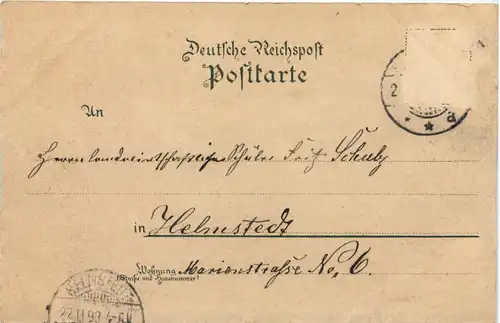 Deutsche Reichspost
Postkarte
An
Herrn landwirtschaftliche Schüler Fritz Schulz
in Helmstedt
Wohnung Marienstrasse No. 6.
(Strasse und Hausnummer)
2
a